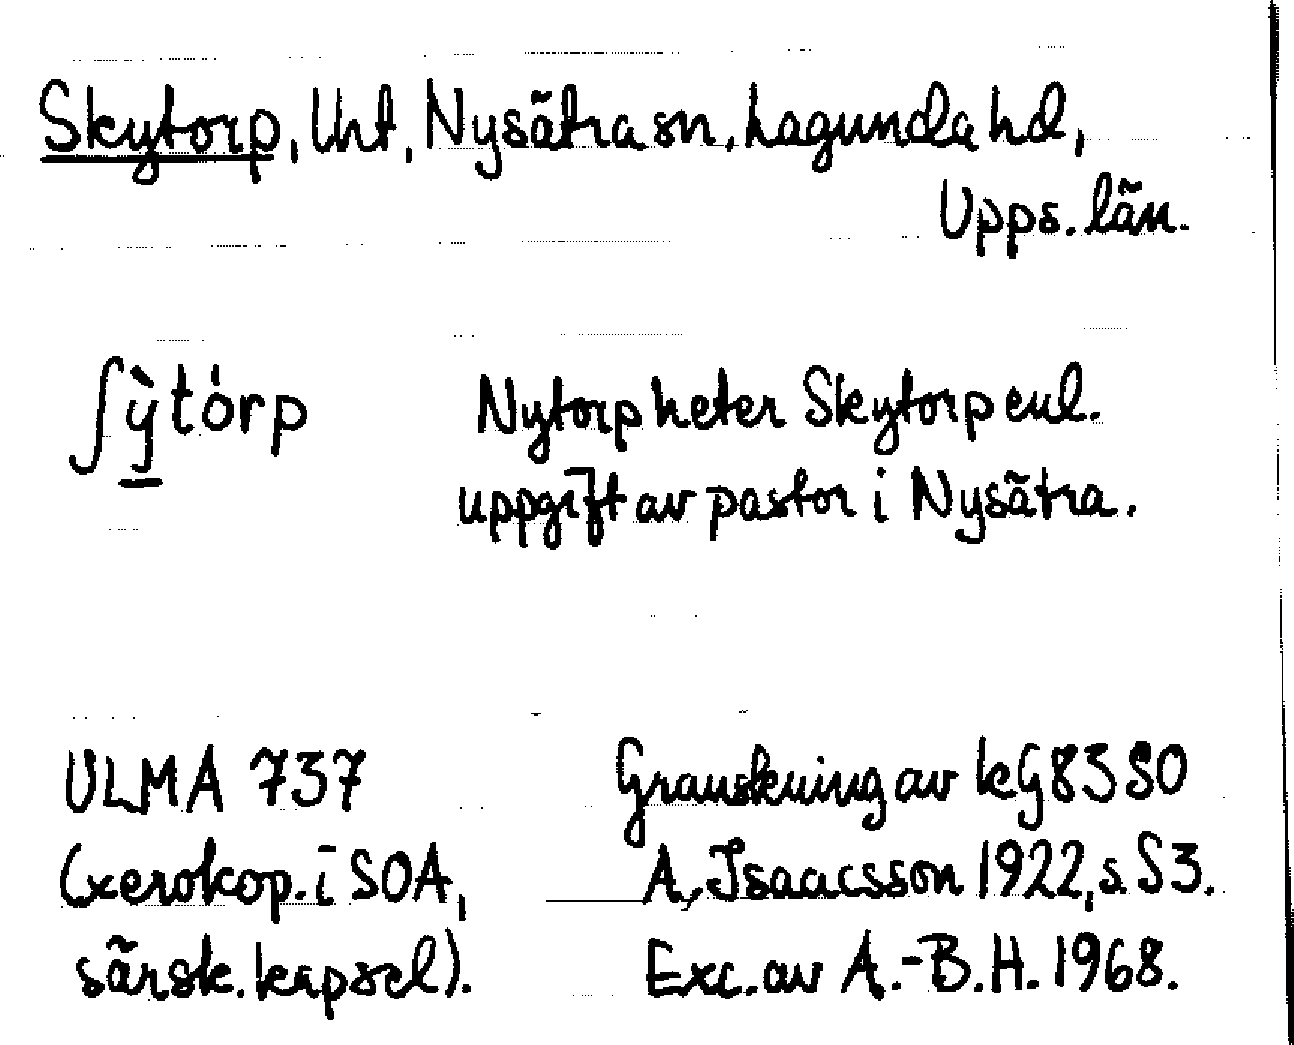 Skytorp, Uht, Nysätra sn, Lagunda hd,
Upps. län.
ʃỳtórp
Nytorp heter Skytorp enl.
uppgift av pastor i Nysätra.
ULMA 737
(xerokop. i SOA,
särsk. kapsel).
Granskning av kG 83 50
A. Isaacsson 1922, s. 53.
Exc. av A.-B. H. 1968.